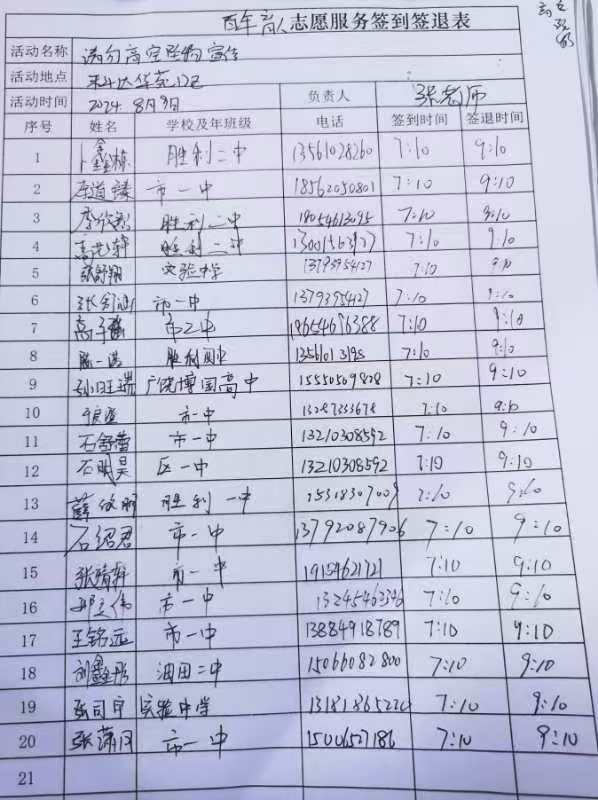 百年育人志愿服务签到签退表
活动名称 清分高空坠物宣传
活动地点 来斗达华苑
活动时间 2024 8月 日 负责人 张老师
序号 姓名 学校及年班级 电话 签到时间 签退时间
1 卜鑫栋 胜利二中 13561028260 7:10 9:10
2 庄道臻 市一中 18562050801 7:10 9:10
3 李欣 胜利二中 18054613095 7:10 9:10
4 胜利二中 7:10 9:10
5 张舒翔 实验中学 13793954127 7:10 9:10
6 市一中 13793954127 7:10 9:10
7 高子涵 市二中 18654676388 7:10 9:10
8 陈一诺 胜利 7:10 9:10
9 孙旺瑞 广饶博国高中 15550509808 7:10 9:10
10 市一中 7:10 9:10
11 石舒蕾 市一中 13210308592 7:10 9:10
12 石明昊 区一中 13210308592 7:10 9:10
13 薛 胜利一中 15318307009 7:10 9:10
14 石绍君 市一中 13792087906 7:10 9:10
15 张靖轩 市一中 19154621721 7:10 9:10
16 市一中 7:10 9:10
17 王铭远 市一中 13884918789 7:10 9:10
18 刘鑫彤 油田二中 15066082800 7:10 9:10
19 张司宇 实验中学 7:10 9:10
20 张潇月 市一中 15006527186 7:10 9:10
21